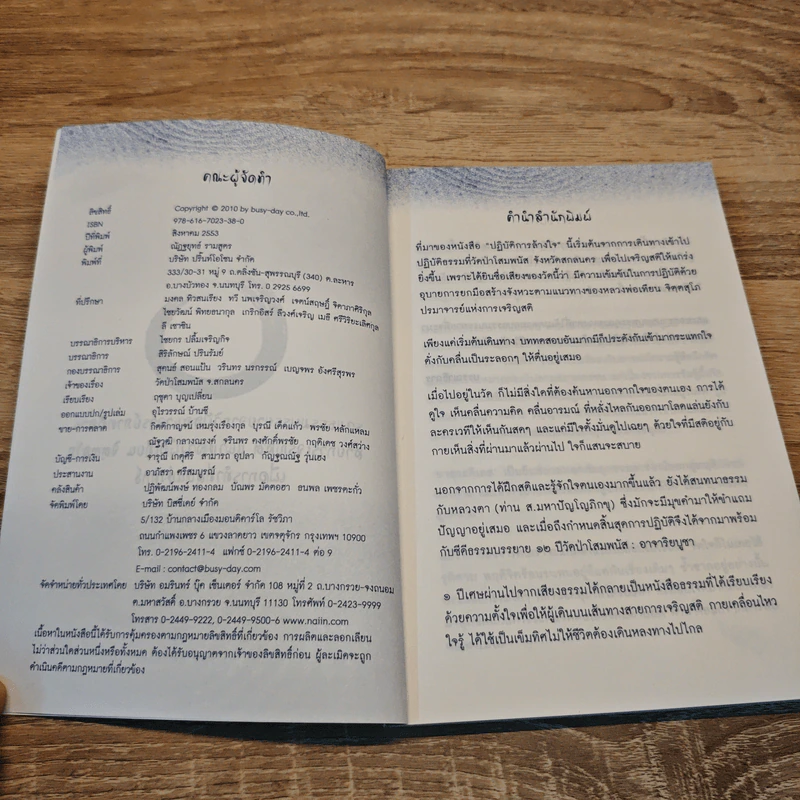 คณะผู้จัดทำ
ลิขสิทธิ์ Copyright © 2010 by busy-day co.,ltd.
ISBN 978-616-7023-38-0
ปีที่พิมพ์ สิงหาคม 2553
ผู้พิมพ์ ณัฏฐยุทธ รามสูตร
พิมพ์ที่ บริษัท ปริ้นท์โอโซน จำกัด
333/30-31 หมู่ 9 ถ.ตลิ่งชัน-สุพรรณบุรี (340) ต.ละหาร
อ.บางบัวทอง จ.นนทบุรี โทร. 0 2925 6699
ที่ปรึกษา มงคล ทิวสนเรียง ทวี นพเจริญวงศ์ เจตน์สฤษฎิ์ จิดาภาศิริกุล
ไชยวัฒน์ พิทยธนากุล เกริกอิสร์ ลีวงศ์เจริญ เมธี ศรีวิริยะเลิศกุล
ลี เซาซิน
บรรณาธิการบริหาร ไชยกร ปลื้มเจริญกิจ
บรรณาธิการ สิริลักษณ์ ปรินรัมย์
กองบรรณาธิการ สุคนธ์ สอนแป้น วรินทร นรกรรณ์ เบญจพร อังศรีสุรพร
เจ้าของเรื่อง วัดป่าโสมพนัส จ.สกลนคร
เรียบเรียง ฤชุตา บุญเปลี่ยน
ออกแบบปก/รูปเล่ม อุไรวรรณ์ บ้านชี
ขาย-การตลาด กิตติกาญจน์ เหมรุ่งเรืองกุล บูรณี เค็ดแก้ว พรชัย หลักแหลม
ณัฐวุฒิ กลางณรงค์ จรินพร คงศักดิ์พรชัย กฤติเดช วงศ์สว่าง
บัญชี-การเงิน จารุณี เกตุศิริ สามารถ อุปลา กัญฐณณัฐ วุ่นเฮง
ประสานงาน อาภัสรา ศรีสมบูรณ์
คลังสินค้า ปฏิพัฒน์พงษ์ ทองกลม บัณพร มัดตอฮา ธนพล เพชรตะกั่ว
จัดพิมพ์โดย บริษัท บีสซี่เดย์ จำกัด
5/132 บ้านกลางเมืองมอนติคาร์โล รัชวิภา
ถนนกำแพงเพชร 6 แขวงลาดยาว เขตจตุจักร กรุงเทพฯ 10900
โทร. 0-2196-2411-4 แฟกซ์ 0-2196-2411-4 ต่อ 9
E-mail : contact@busy-day.com
จัดจำหน่ายทั่วประเทศโดย บริษัท อมรินทร์ บุ๊ค เซ็นเตอร์ จำกัด 108 หมู่ที่ 2 ถ.บางกรวย-จงถนอม
ต.มหาสวัสดิ์ อ.บางกรวย จ.นนทบุรี 11130 โทรศัพท์ 0-2423-9999
โทรสาร 0-2449-9222, 0-2449-9500-6 www.naiin.com
เนื้อหาในหนังสือนี้ได้รับการคุ้มครองตามกฎหมายลิขสิทธิ์ที่เกี่ยวข้อง การผลิตและลอกเลียน
ไม่ว่าส่วนใดส่วนหนึ่งหรือทั้งหมด ต้องได้รับอนุญาตจากเจ้าของลิขสิทธิ์ก่อน ผู้ละเมิดจะถูก
ดำเนินคดีตามกฎหมายที่เกี่ยวข้อง
คำนำสำนักพิมพ์
ที่มาของหนังสือ "ปฏิบัติการล้างใจ" นี้เริ่มต้นจากการเดินทางเข้าไป
ปฏิบัติธรรมที่วัดป่าโสมพนัส จังหวัดสกลนคร เพื่อไปเจริญสติให้แกร่ง
ยิ่งขึ้น เพราะได้ยินชื่อเสียงของวัดนี้ว่า มีความเข้มข้นในการปฏิบัติด้วย
อุบายการยกมือสร้างจังหวะตามแนวทางของหลวงพ่อเทียน จิตฺตสุโภ
ปรมาจารย์แห่งการเจริญสติ
เพียงแค่เริ่มต้นเดินทาง บททดสอบอันมากมีก็ประดังกันเข้ามากระแทกใจ
ดั่งกับคลื่นเป็นระลอกๆ ให้ตื่นอยู่เสมอ
เมื่อไปอยู่ในวัด ก็ไม่มีสิ่งใดที่ต้องค้นหานอกจากใจของตนเอง การได้
ดูใจ เห็นคลื่นความคิด คลื่นอารมณ์ ที่หลั่งไหลกันออกมาโลดแล่นยังกับ
ละครเวทีให้เห็นกันสดๆ และแค่มีใจตั้งมั่นดูไปเฉยๆ ด้วยใจที่มีสติอยู่กับ
กายเห็นสิ่งที่ผ่านมาแล้วผ่านไป ใจก็แสนจะสบาย
นอกจากการได้ฝึกสติและรู้จักใจตนเองมากขึ้นแล้ว ยังได้สนทนาธรรม
กับหลวงตา (ท่าน ส.มหาปัญโญภิกขุ) ซึ่งมักจะมีมุขคำมาให้ขำแถม
ปัญญาอยู่เสมอ และเมื่อถึงกำหนดสิ้นสุดการปฏิบัติจึงได้จากมาพร้อม
กับซีดีธรรมบรรยาย ๑๒ ปีวัดป่าโสมพนัส : อาจาริยบูชา
๑ ปีเศษผ่านไปจากเสียงธรรมได้กลายเป็นหนังสือธรรมที่ได้เรียบเรียง
ด้วยความตั้งใจเพื่อให้ผู้เดินบนเส้นทางสายการเจริญสติ กายเคลื่อนไหว
ใจรู้ ได้ใช้เป็นเข็มทิศไม่ให้ชีวิตต้องเดินหลงทางไปไกล